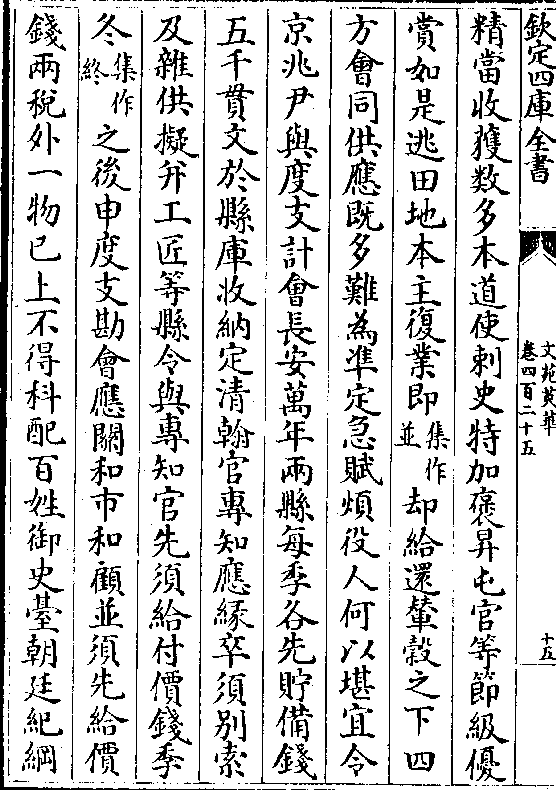 欽定四庫全書
文苑英華
卷四百二十五
十五
精當收獲数多本道使刺史特加褒昇屯官等節級優
賞如是逃田地本主復業即集作並却給還輦轂之下四
方會同供應既多難為準定急賦煩役人何以堪宜令
京兆尹與度支計會長安萬年兩縣每季各先貯備錢
五千貫文於縣庫收納定清幹官專知應緣卒須別索
及雜供擬幷工匠等縣令與專知官先須給付價錢季
冬集作終之後申度支勘會應闗和市和顧並須先給價
錢兩稅外一物已上不得科配百姓御史臺朝廷紀綱